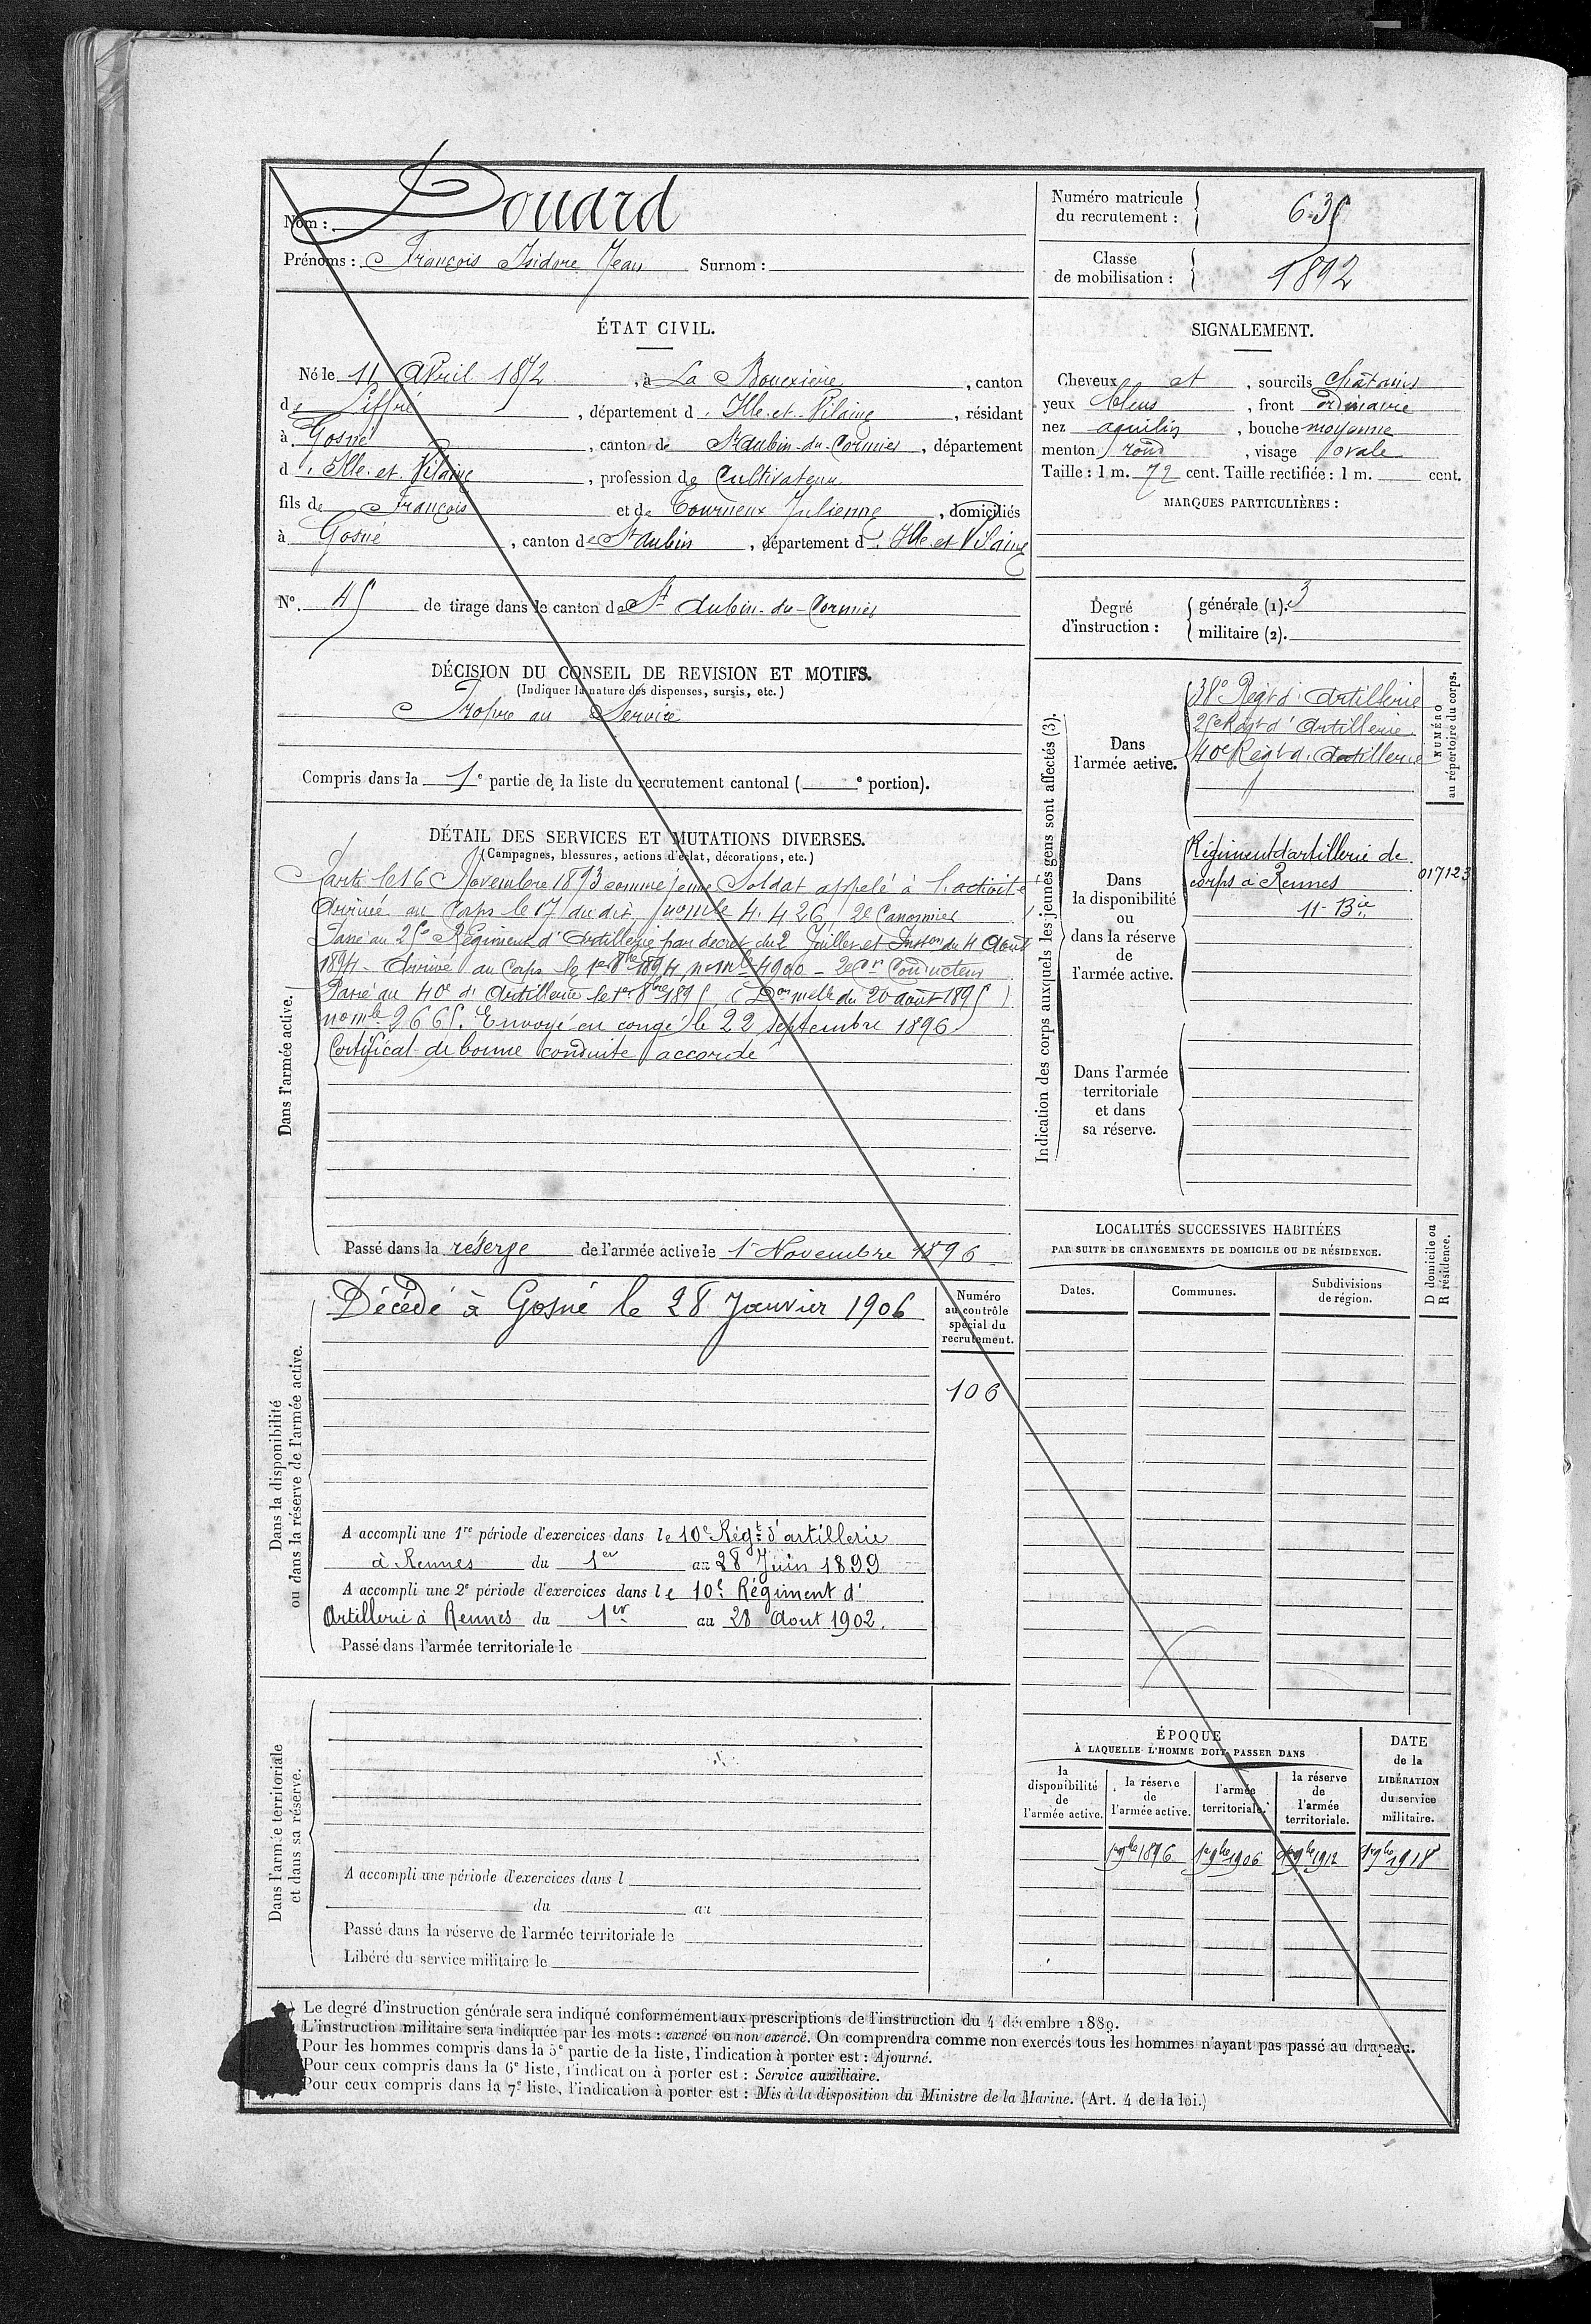 Nom : Douard
Prénoms : François Isidore Jean Surnom :
Numéro matricule du recrutement : 635
Classe de mobilisation : 1892
ÉTAT CIVIL.
Né le 11 Avril 1872, à La Bouexière, canton
de Liffré, département d'Ille-et-Vilaine, résidant
à Gosné, canton de St Aubin-du-Cormier, département
d'Ille-et-Vilaine, profession de Cultivateur
fils de François et de Tourneux Julienne, domiciliés
à Gosné, canton de St Aubin, département d'Ille et Vilaine
N°. 45 de tirage dans le canton de St Aubin-du-Cormier
SIGNALEMENT.
Cheveux et, sourcils châtains
yeux bleus, front ordinaire
nez aquilin, bouche moyenne
menton rond, visage ovale
Taille : 1 m. 72 cent. Taille rectifiée : 1 m. cent.
MARQUES PARTICULIÈRES :
Degré d'instruction :
générale (1). 3
militaire (2).
DÉCISION DU CONSEIL DE REVISION ET MOTIFS.
(Indiquer la nature des dispenses, sursis, etc.)
Propre au Service
Compris dans la 1e partie de la liste du recrutement cantonal ( e portion).
DÉTAIL DES SERVICES ET MUTATIONS DIVERSES.
(Campagnes, blessures, actions d'éclat, décorations, etc.)
Dans l'armée active.
Parti le 16 Novembre 1893 comme jeune Soldat appelé à l'activité
Arrivé au Corps le 17 du dit, no mle 4.426, 2e Canonnier
Passé au 25e Régiment d'Artillerie par decret du 2 Juillet et Inston du 4 Août
1894 - Arrivé au Corps le 1er 8bre 1894, no mle 4900 - 2e Cr Conducteur
Passé au 40e d'Artillerie le 1er 8bre 1895 (Don melle du 20 août 1895)
no mle 2665. Envoyé en congé le 22 septembre 1896
Certificat de bonne conduite accordé
Passé dans la réserve de l'armée active le 1er Novembre 1896
Indication des corps auxquels les jeunes gens sont affectés (3).
NUMÉRO au répertoire du corps.
Dans l'armée active.
38e Régt d'Artillerie
25e Régt d'Artillerie
40e Régt d'Artillerie
Dans la disponibilité ou dans la réserve de l'armée active.
Régiment d'artillerie de
corps à Rennes
11e Bie
017123
Dans l'armée territoriale et dans sa réserve.
LOCALITÉS SUCCESSIVES HABITÉES
PAR SUITE DE CHANGEMENTS DE DOMICILE OU DE RÉSIDENCE.
Dates. Communes. Subdivisions de région. D domicile ou R résidence.
Dans la disponibilité ou dans la réserve de l'armée active.
Décédé à Gosné le 28 Janvier 1906
Numéro au contrôle spécial du recrutement.
106
A accompli une 1re période d'exercices dans le 10e Régt d'artillerie
à Rennes du 1er au 28 Juin 1899
A accompli une 2e période d'exercices dans le 10e Régiment d'
Artillerie à Rennes du 1er au 28 Aout 1902.
Passé dans l'armée territoriale le
Dans l'armée territoriale et dans sa réserve.
A accompli une période d'exercices dans l
du au
Passé dans la réserve de l'armée territoriale le
Libéré du service militaire le
ÉPOQUE
À LAQUELLE L'HOMME DOIT PASSER DANS
la disponibilité de l'armée active. la réserve de l'armée active. l'armée territoriale. la réserve de l'armée territoriale.
DATE de la LIBÉRATION du service militaire.
1er 9bre 1896 1er 9bre 1906 1er 9bre 1912 1er 9bre 1918
Le degré d'instruction générale sera indiqué conformément aux prescriptions de l'instruction du 4 décembre 1889.
L'instruction militaire sera indiquée par les mots : exercé ou non exercé. On comprendra comme non exercés tous les hommes n'ayant pas passé au drapeau.
Pour les hommes compris dans la 5e partie de la liste, l'indication à porter est : Ajourné.
Pour ceux compris dans la 6e liste, l'indication à porter est : Service auxiliaire.
Pour ceux compris dans la 7e liste, l'indication à porter est : Mis à la disposition du Ministre de la Marine. (Art. 4 de la loi.)